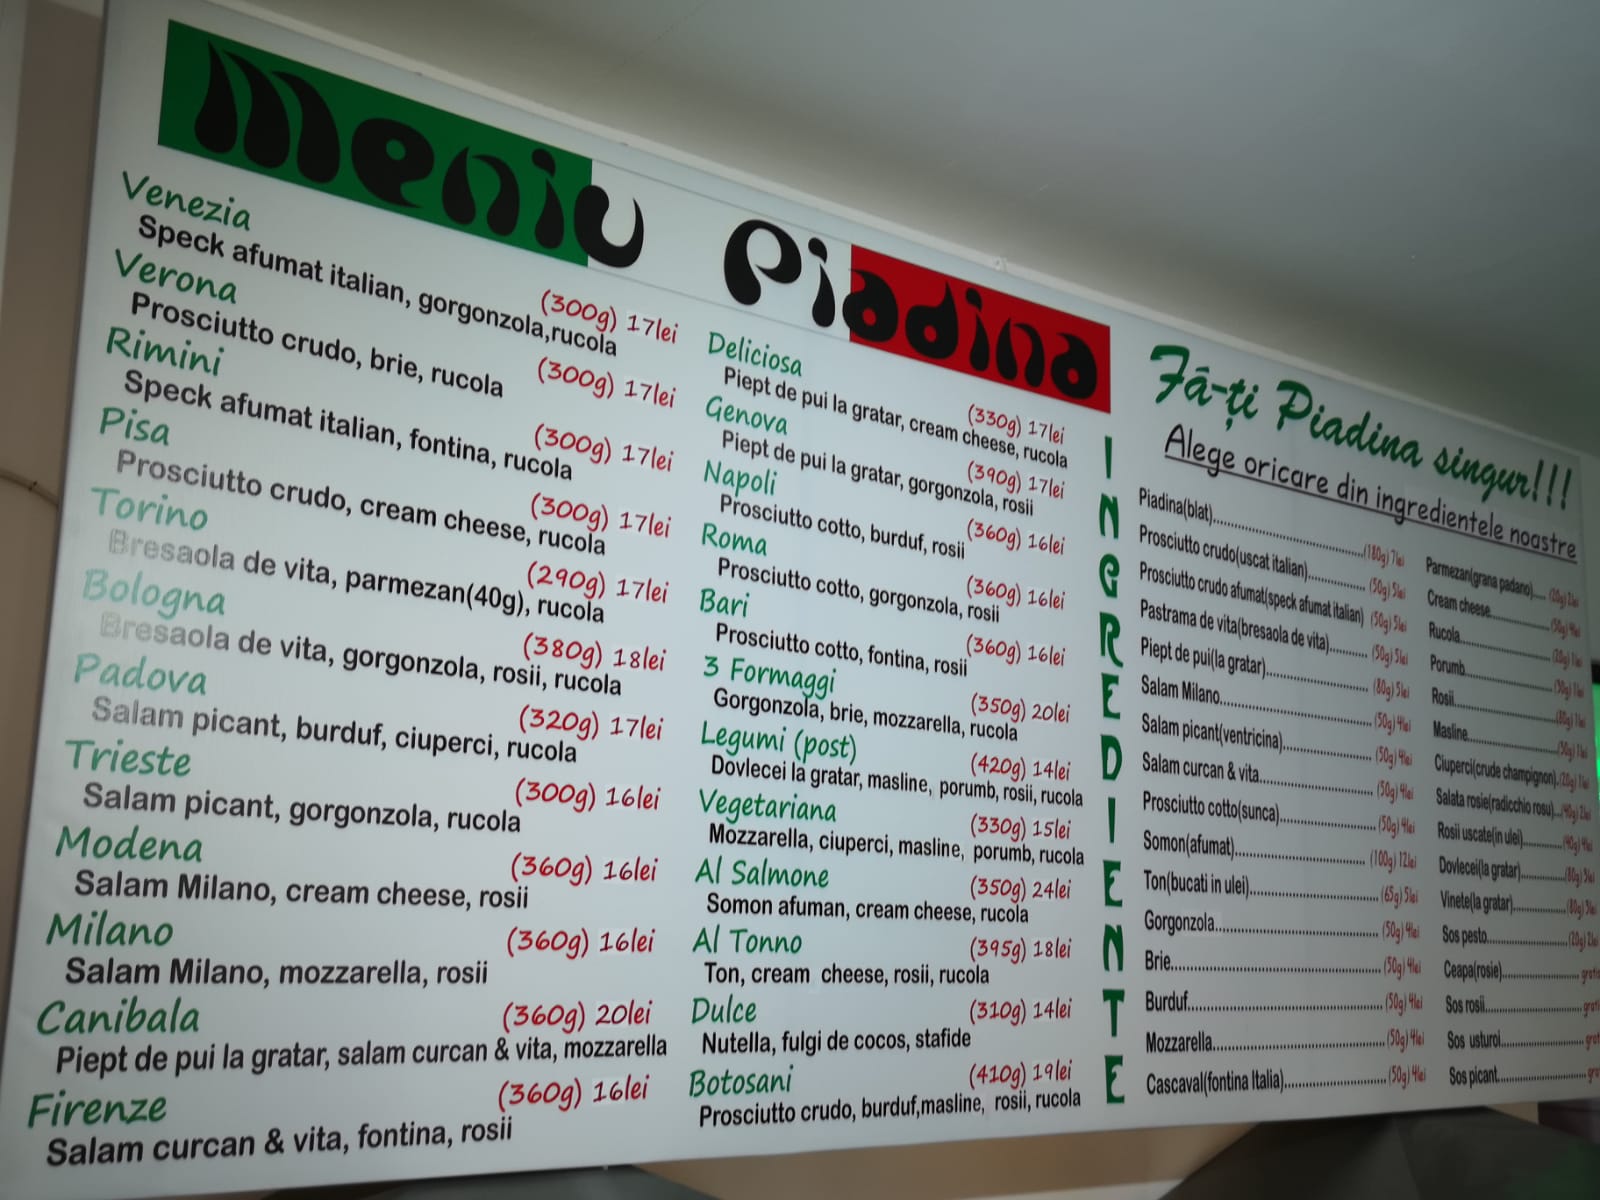 Meniu Piadina
Venezia
(300g) 17lei
Speck afumat italian, gorgonzola,rucola
Verona
(300g) 17lei
Prosciutto crudo, brie, rucola
Rimini
(300g) 17lei
Speck afumat italian, fontina, rucola
Pisa
(300g) 17lei
Prosciutto crudo, cream cheese, rucola
Torino
(290g) 17lei
Bresaola de vita, parmezan(40g), rucola
Bologna
(380g) 18lei
Bresaola de vita, gorgonzola, rosii, rucola
Padova
(320g) 17lei
Salam picant, burduf, ciuperci, rucola
Trieste
(300g) 16lei
Salam picant, gorgonzola, rucola
Modena
(360g) 16lei
Salam Milano, cream cheese, rosii
Milano
(360g) 16lei
Salam Milano, mozzarella, rosii
Canibala
(360g) 20lei
Piept de pui la gratar, salam curcan & vita, mozzarella
Firenze
(360g) 16lei
Salam curcan & vita, fontina, rosii
Deliciosa
(330g) 17lei
Piept de pui la gratar, cream cheese, rucola
Genova
(390g) 17lei
Piept de pui la gratar, gorgonzola, rosii
Napoli
(360g) 16lei
Prosciutto cotto, burduf, rosii
Roma
(360g) 16lei
Prosciutto cotto, gorgonzola, rosii
Bari
(360g) 16lei
Prosciutto cotto, fontina, rosii
3 Formaggi
(350g) 20lei
Gorgonzola, brie, mozzarella, rucola
Legumi (post)
(420g) 14lei
Dovlecei la gratar, masline, porumb, rosii, rucola
Vegetariana
(330g) 15lei
Mozzarella, ciuperci, masline, porumb, rucola
Al Salmone
(350g) 24lei
Somon afuman, cream cheese, rucola
Al Tonno
(395g) 18lei
Ton, cream cheese, rosii, rucola
Dulce
(310g) 14lei
Nutella, fulgi de cocos, stafide
Botosani
(410g) 19lei
Prosciutto crudo, burduf,masline, rosii, rucola
INGREDIENTE
Fă-ți Piadina singur!!!
Alege oricare din ingredientele noastre
Piadina(blat)..........(180g) 7lei
Prosciutto crudo(uscat italian)..........(50g) 5lei
Prosciutto crudo afumat(speck afumat italian) (50g) 5lei
Pastrama de vita(bresaola de vita)..........(50g) 5lei
Piept de pui(la gratar)..........(80g) 5lei
Salam Milano..........(50g) 4lei
Salam picant(ventricina)..........(50g) 4lei
Salam curcan & vita..........(50g) 4lei
Prosciutto cotto(sunca)..........(50g) 4lei
Somon(afumat)..........(100g) 12lei
Ton(bucati in ulei)..........(65g) 5lei
Gorgonzola..........(50g) 4lei
Brie..........(50g) 4lei
Burduf..........(50g) 4lei
Mozzarella..........(50g) 4lei
Cascaval(fontina Italia)..........(50g) 4lei
Parmezan(grana padano).....
Cream cheese..........
Rucola..........
Porumb..........
Rosii..........
Masline..........
Ciuperci(crude champignon).
Salata rosie(radicchio rosu)...
Rosii uscate(in ulei)..........
Dovlecei(la gratar)..........
Vinete(la gratar)..........
Sos pesto..........
Ceapa(rosie)..........
Sos rosii..........
Sos usturoi..........
Sos picant..........